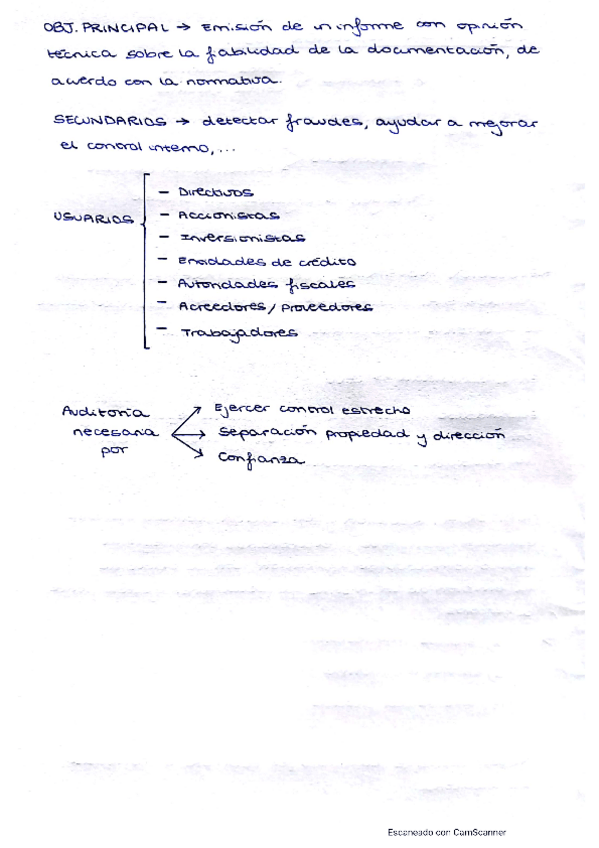 OBJ. PRINCIPAL → Emisión de un informe con opinión
técnica sobre la fiabilidad de la documentación, de
acuerdo con la normativa.
SECUNDARIOS → detectar fraudes, ayudar a mejorar
el control interno,...
USUARIOS
- Directivos
- Accionistas
- Inversionistas
- Entidades de crédito
- Autoridades fiscales
- Acreedores / Proveedores
- Trabajadores
Auditoría
necesaria
por
Ejercer control estrecho
Separación propiedad y dirección
Confianza
Escaneado con CamScanner